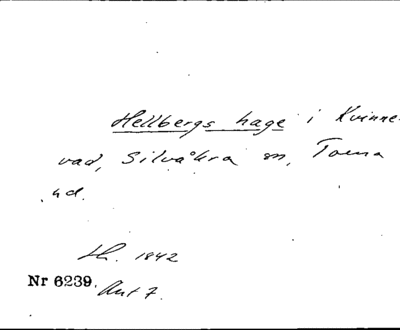 Hellbergs hage i Kvinne-
vad, Silvåkra sn, Torna
hd.
Lh. 1842
Nr 6239.
Ant 7.